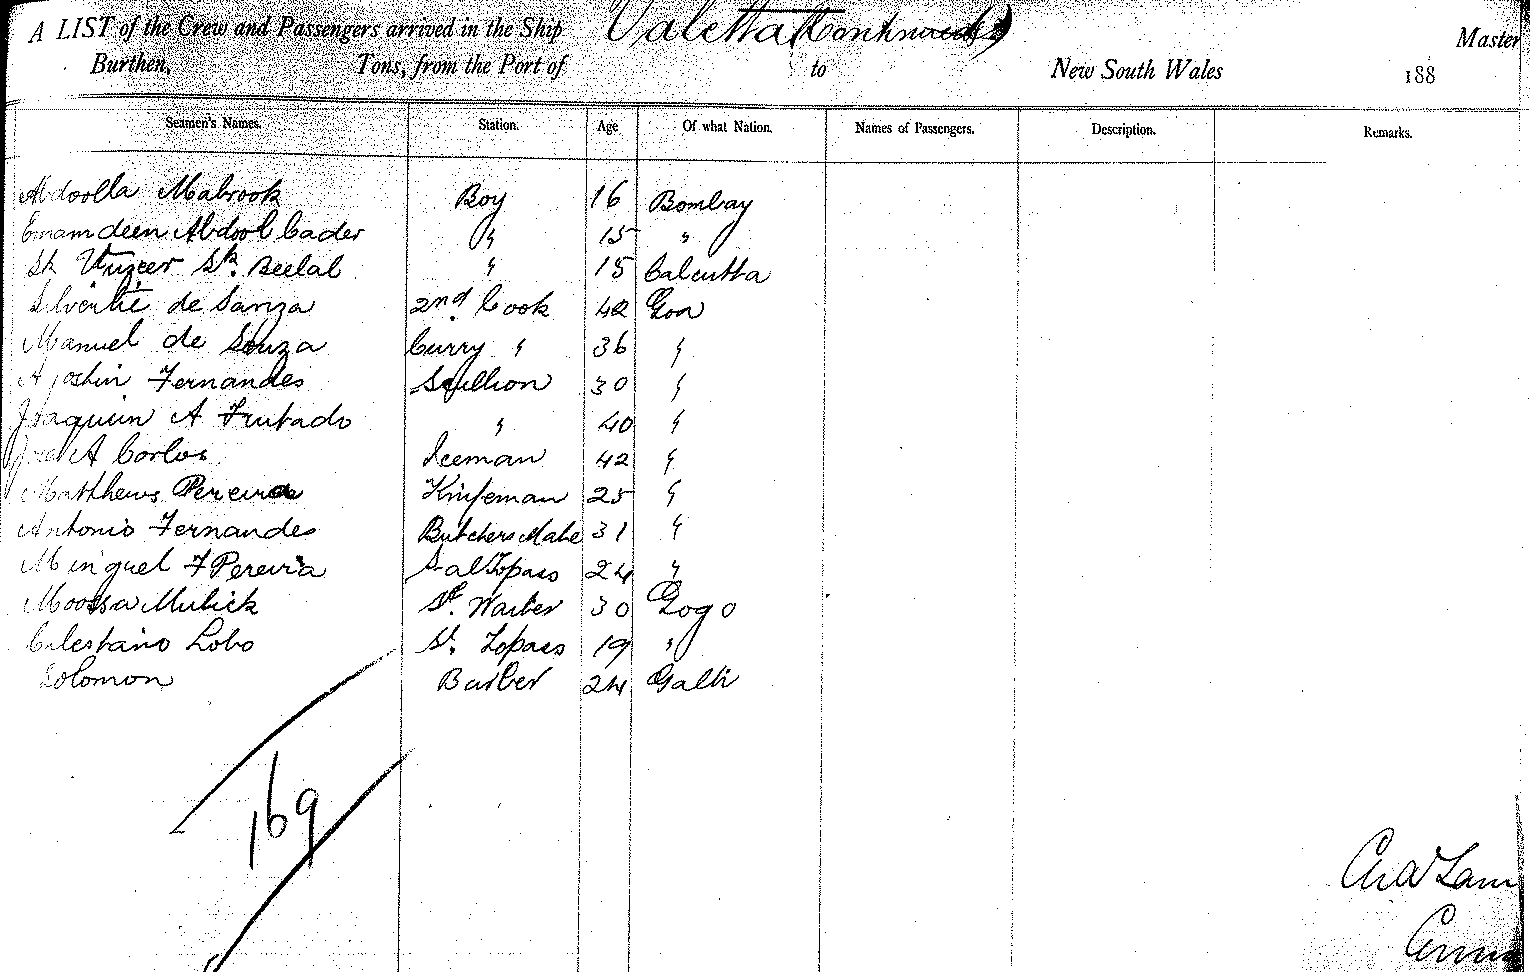 A LIST of the Crew and Passengers arrived in the Ship Valetta (Continued) Master
Burthen, Tons, from the Port of to New South Wales 188
Seamen's Names. Station. Age Of what Nation. Names of Passengers. Description. Remarks.
Abdoolla Mabrook Boy 16 Bombay
Emamdeen Abdool Cader " 15 "
Sk Vuzeer Sk. Beelal " 15 Calcutta
de Sanza 2nd Cook 42 Goa
Manuel de Souza Curry " 36 "
Agostin Fernandes Scullion 30 "
Joaquin A Furtado " 40 "
Jose A Carlos Iceman 42 "
Matthews Pereira Knifeman 25 "
Antonio Fernandes Butchers Mate 31 "
Minguel F Pereira Sal Topass 24 "
Moossa Mulick St. Waiter 30 Gogo
Celestano Lobo St. Topass 19 "
Solomon Barber 24 Galle
169